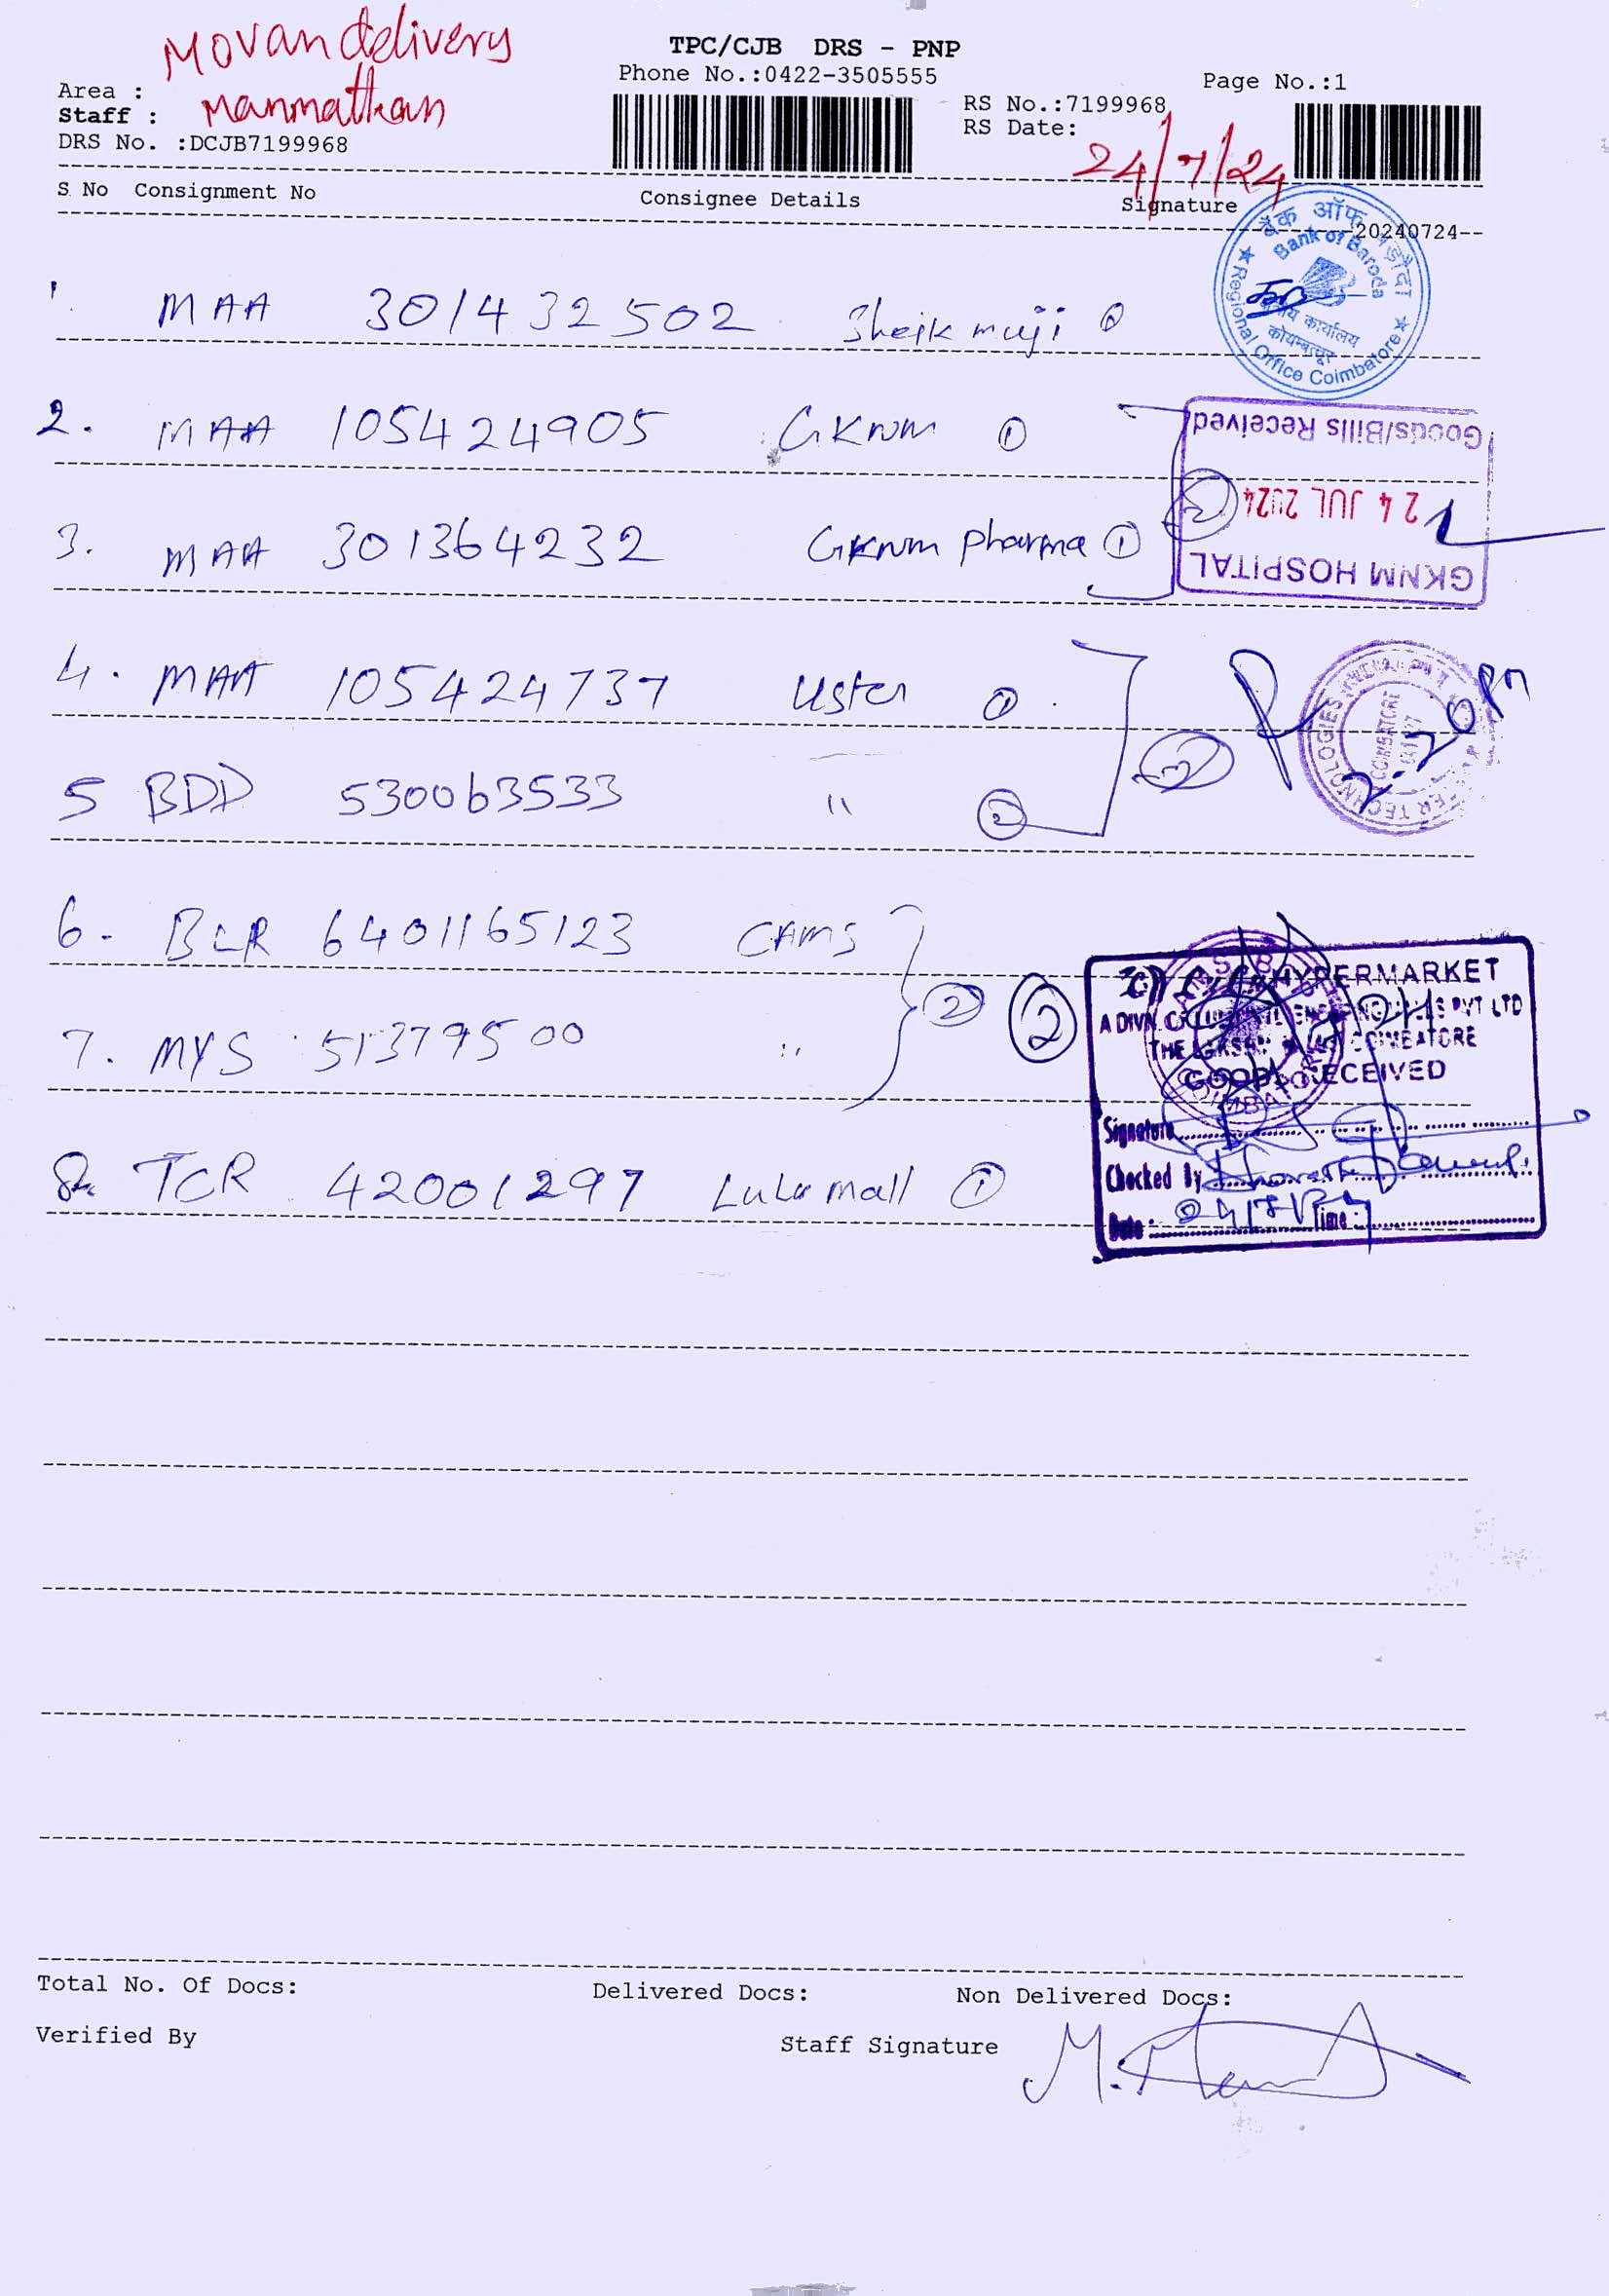 Movan delivery
TPC/CJB DRS - PNP
Phone No.:0422-3505555
Page No.:1
Area :
Staff : Manmathan
RS No.:7199968
RS Date: 24/7/24
DRS No. :DCJB7199968
S No Consignment No Consignee Details Signature
--20240724--
बैंक ऑफ़ बड़ौदा
Bank of Baroda
क्षेत्रीय कार्यालय
कोयम्बत्तूर
★ Regional Office Coimbatore ★
1. MAA 301432502 Sheik muji
2. MAA 105424905 GKNM ①
Goods/Bills Received
24 JUL 2024
GKNM HOSPITAL
3. MAA 301364232 GKNM pharma ① ②
4. MAA 105424737 Uster ①
5 BDD 530063533 " ②
2.20 pm
COIMBATORE
6. BLR 6401165123 CAMS
7. MYS 51379500 " ② ②
HYPERMARKET
COIMBATORE
GOODS RECEIVED
Signature
Checked By
Date : Time :
8. TCR 42001297 Lulu mall ①
Total No. Of Docs: Delivered Docs: Non Delivered Docs:
Verified By Staff Signature